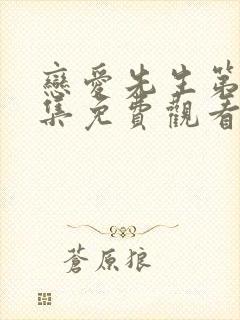 戀愛先生第
集免費觀看
蒼原狼